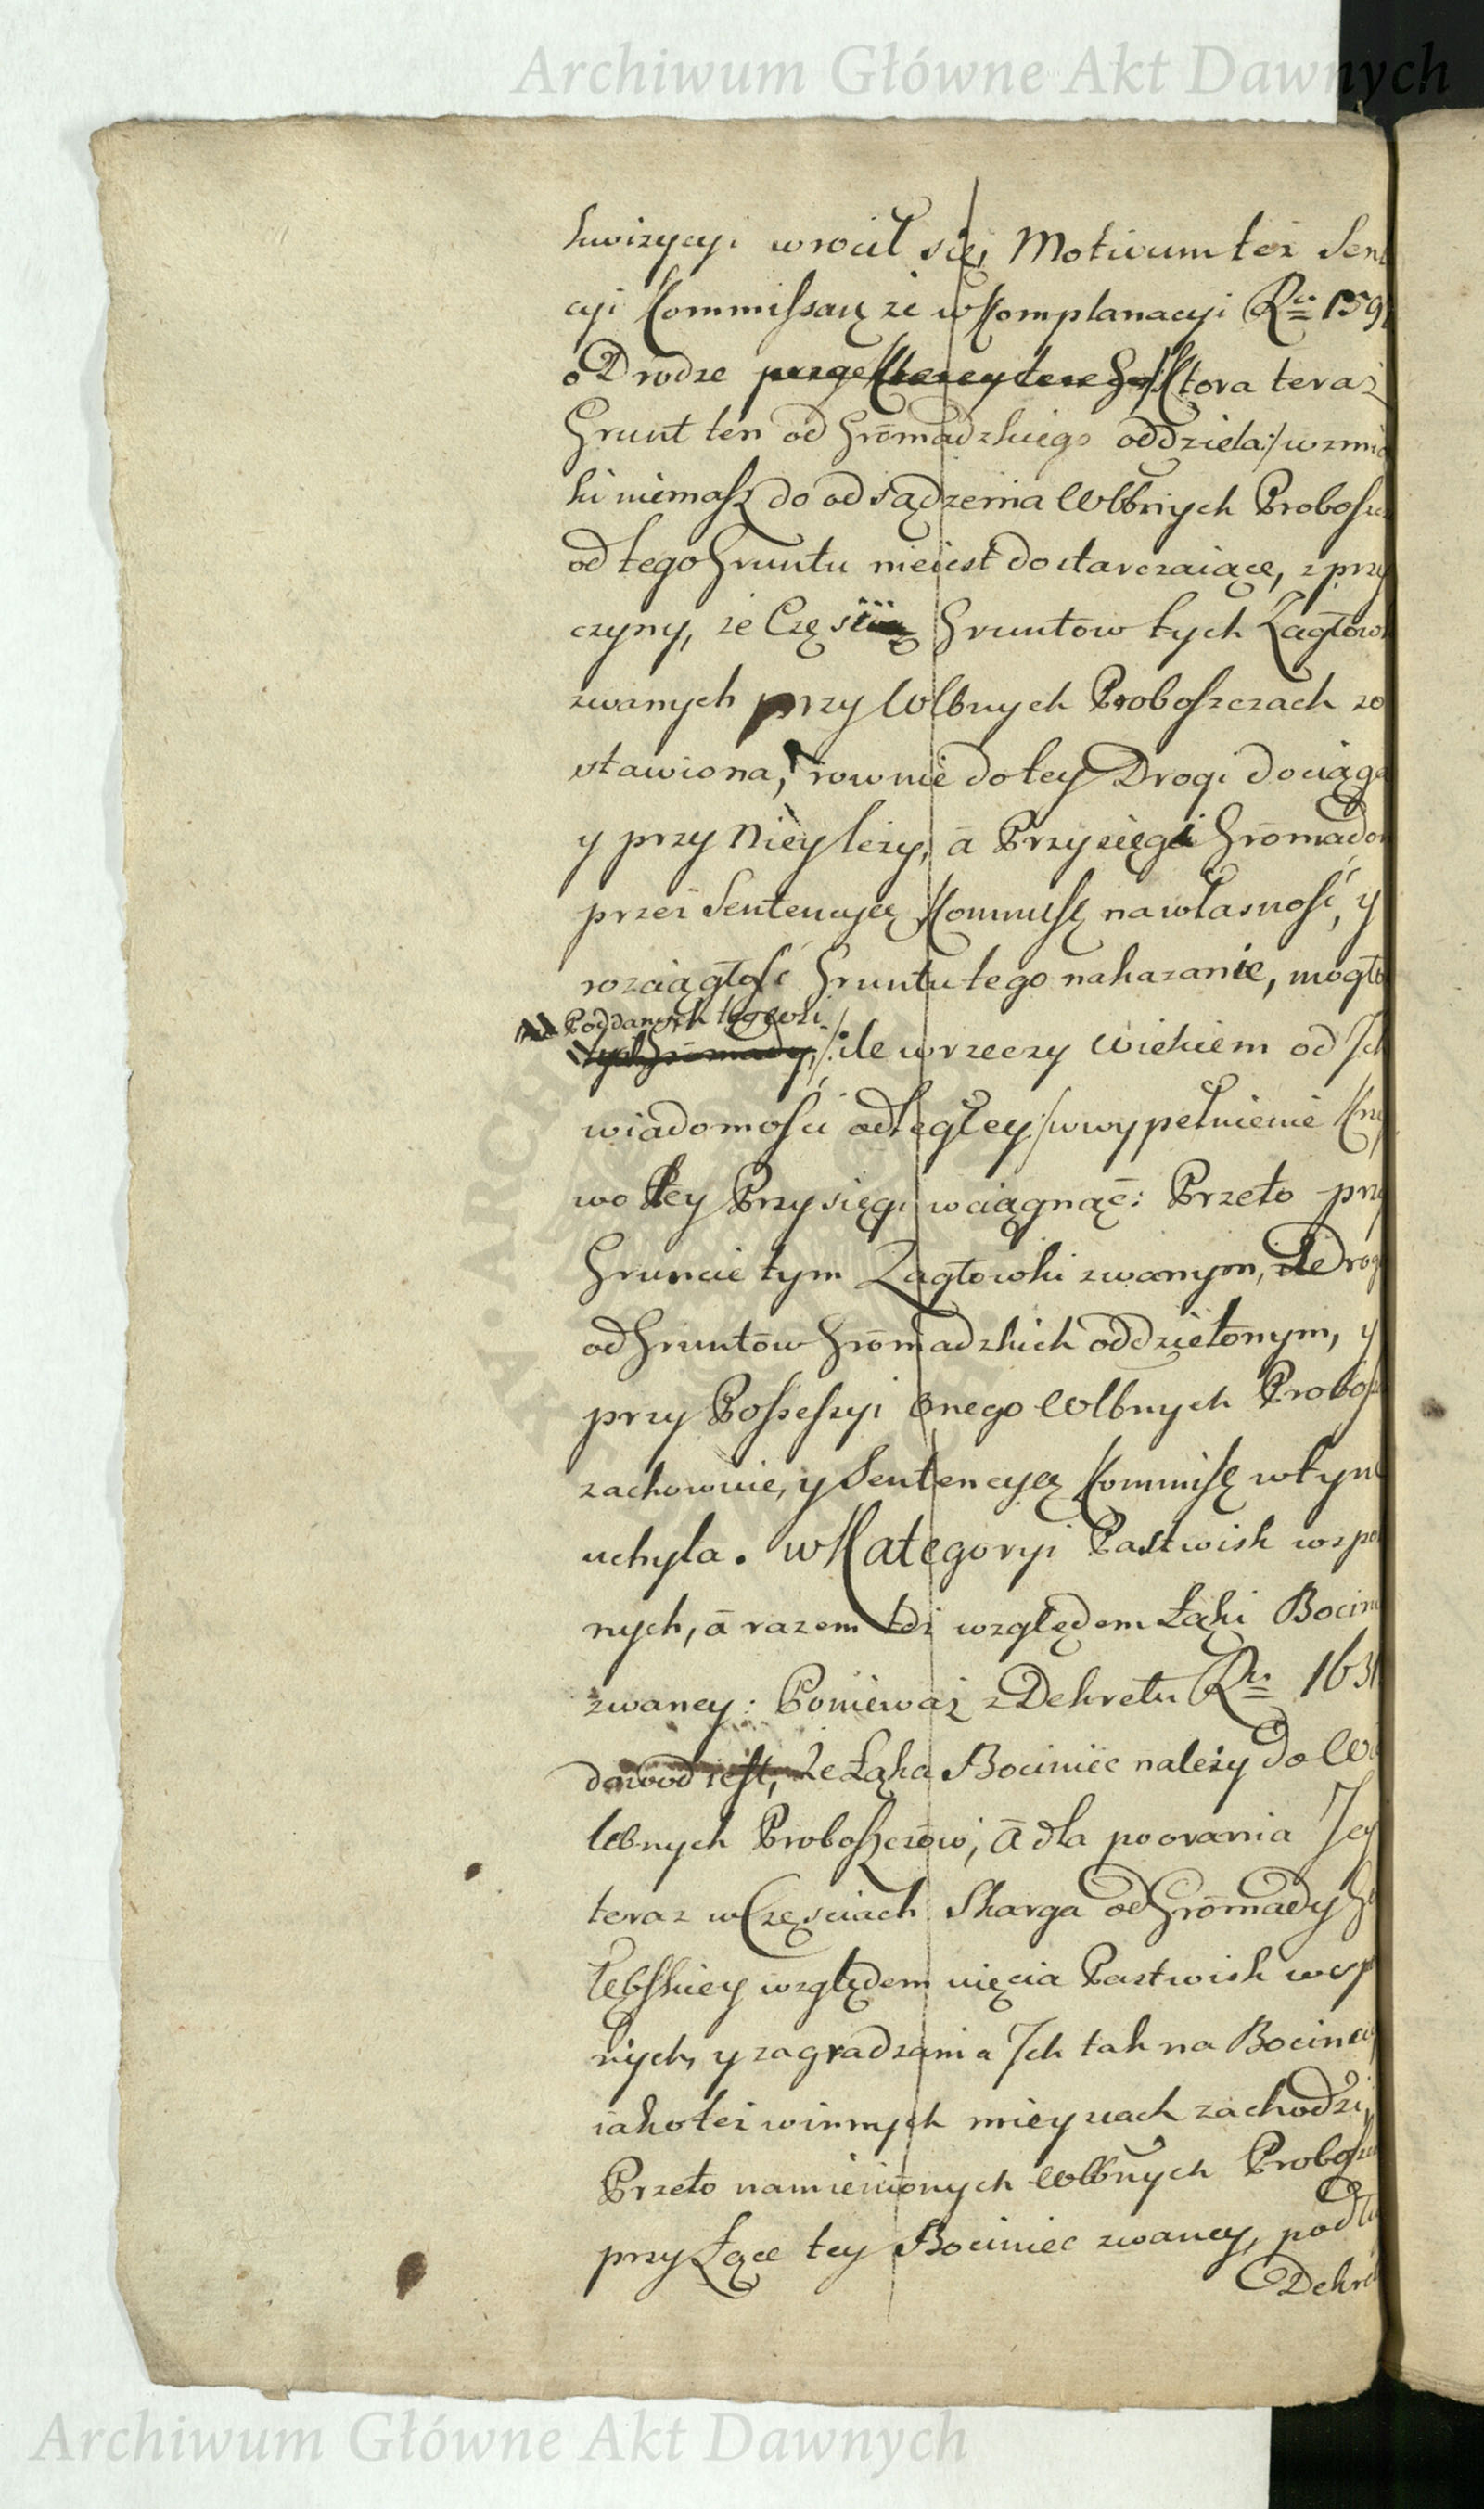 Archiwum Główne Akt Dawnych
kwizycyi wrocił się, Motivum też Sen
cyi Kommissarz że w Komplanacyi Ru 159
o Drodze /Ktora teraz
Grunt ten od Gromadzkiego oddziela:/ wzmia
ki niemasz do odsądzenia Wlbnych Probosz
od tego Gruntu nieiest dostarczaiące, z przy
czyny, że Częsć Gruntow tych Zagłowk
zwanych przy Wlbnych Proboszczach zo
stawiona, rownie do tey Drogi dociąga
y przy Niey leży, ā Przysięgi Gromadom
przez Sentencyą Kommissą na własność, y
rozciągłość Gruntu tego nakazanie, mogło
Poddanych tey wsi
tych Gromady, /:ile w rzeczy wiekiem od Ich
wiadomości odległey:/ w wypełnienie Krz
wo tey Przysięgi wciągnąć: Przeto prz
Gruncie tym Zagłowki zwanym, Drog
od Gruntow Gromadzkich oddzielonym, y
przy Possessyi onego Wlbnych Probosz
zachowuie, y Sentencyą Kommissą w tym
uchyla. w Kategoryi Pastwisk wspo
nych, ā razem też względem Łąki Bocin
zwaney: Ponieważ z Dekretu Ru 163
dowod iest, że Łąka Bociniec należy do Wi
lebnych Proboszczow, ā dla poorania Jey
teraz w Częsciach Skarga od Gromady Go
łębskiey względem uięcia Pastwisk wsp
nych, y zagradzania Ich tak na Bocincu
iako też w innych mieyscach zachodzi,
Przeto namienionych Wlbnych Probosz
przy Łące tey Bociniec zwaney, podłu
Dekre
Archiwum Główne Akt Dawnych